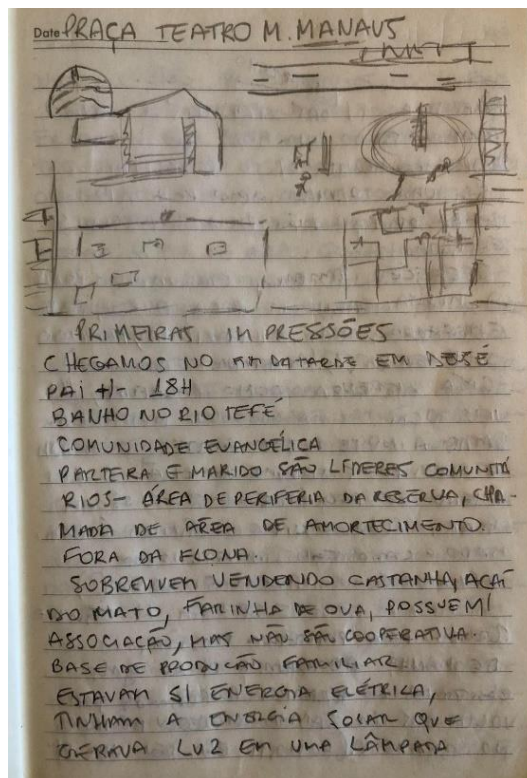 Date PRAÇA TEATRO M. MANAUS
PRIMEIRAS IMPRESSÕES
CHEGAMOS NO DA TARDE EM
PAI +/- 18H
BANHO NO RIO TEFÉ
COMUNIDADE EVANGÉLICA
PARTEIRA E MARIDO SÃO LÍDERES COMUNITÁ
RIOS- ÁREA DE PERIFERIA DA RESERVA, CHA-
MADA DE ÁREA DE AMORTECIMENTO.
FORA DA FLONA.
SOBREVIVEM VENDENDO CASTANHA, AÇAÍ
DO MATO, FARINHA DE OVA, POSSUEM
ASSOCIAÇÃO, MAS NÃO SÃO COOPERATIVA.
BASE DE PRODUÇÃO FAMILIAR
ESTAVAM S/ ENERGIA ELÉTRICA,
TINHAM A ENERGIA SOLAR QUE
GERAVA LUZ EM UMA LÂMPADA